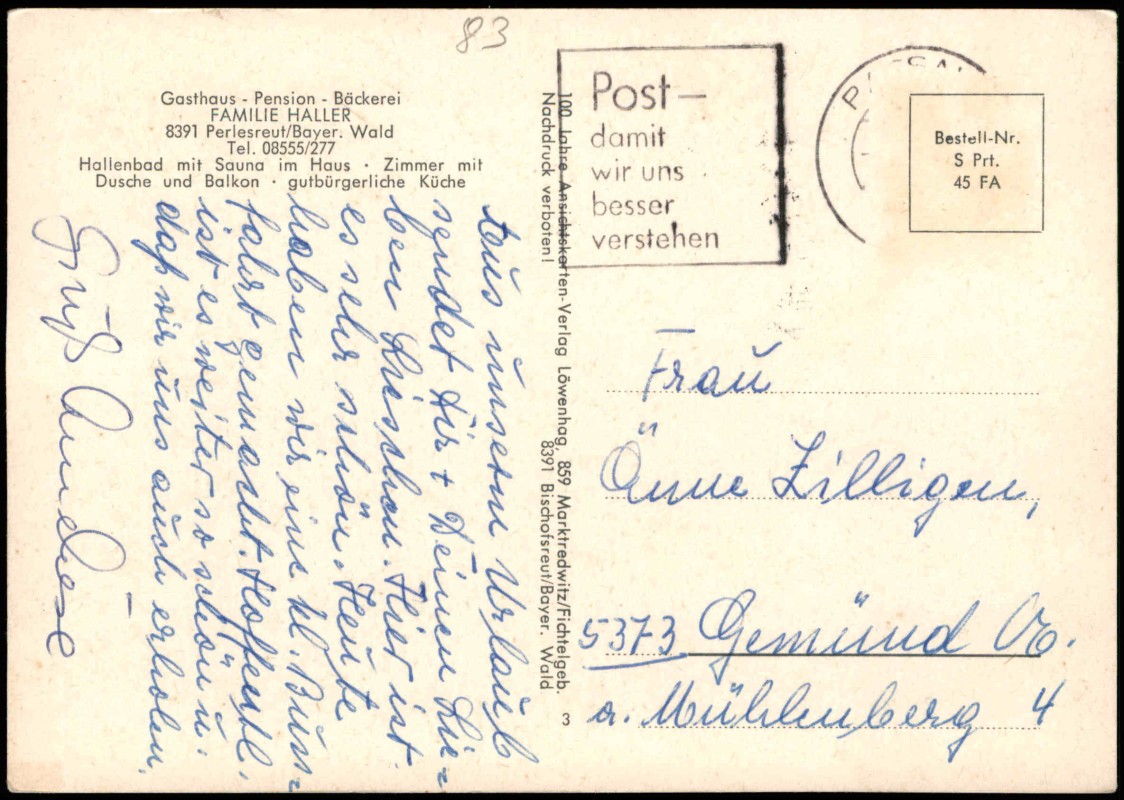 83
Gasthaus - Pension - Bäckerei
FAMILIE HALLER
8391 Perlesreut/Bayer. Wald
Tel. 08555/277
Hallenbad mit Sauna im Haus · Zimmer mit
Dusche und Balkon · gutbürgerliche Küche
Aus unserm Urlaub
sendet Dir + Deinen Lie-
ben Lieschen. Hier ist
es sehr schön. Heute
haben wir eine kl. Bus-
fahrt gemacht. Hoffentl.
ist es weiter so schön u.
daß wir uns auch erholen.
Gruß
100 Jahre Ansichtskarten-Verlag Löwenhag, 859 Marktredwitz/Fichtelgeb.
Nachdruck verboten!
8391 Bischofsreut/Bayer. Wald
3
Post –
damit
wir uns
besser
verstehen
Bestell-Nr.
S Prt.
45 FA
Frau
Änne Zilligen,
5373 Gemünd
a. Mühlenberg 4